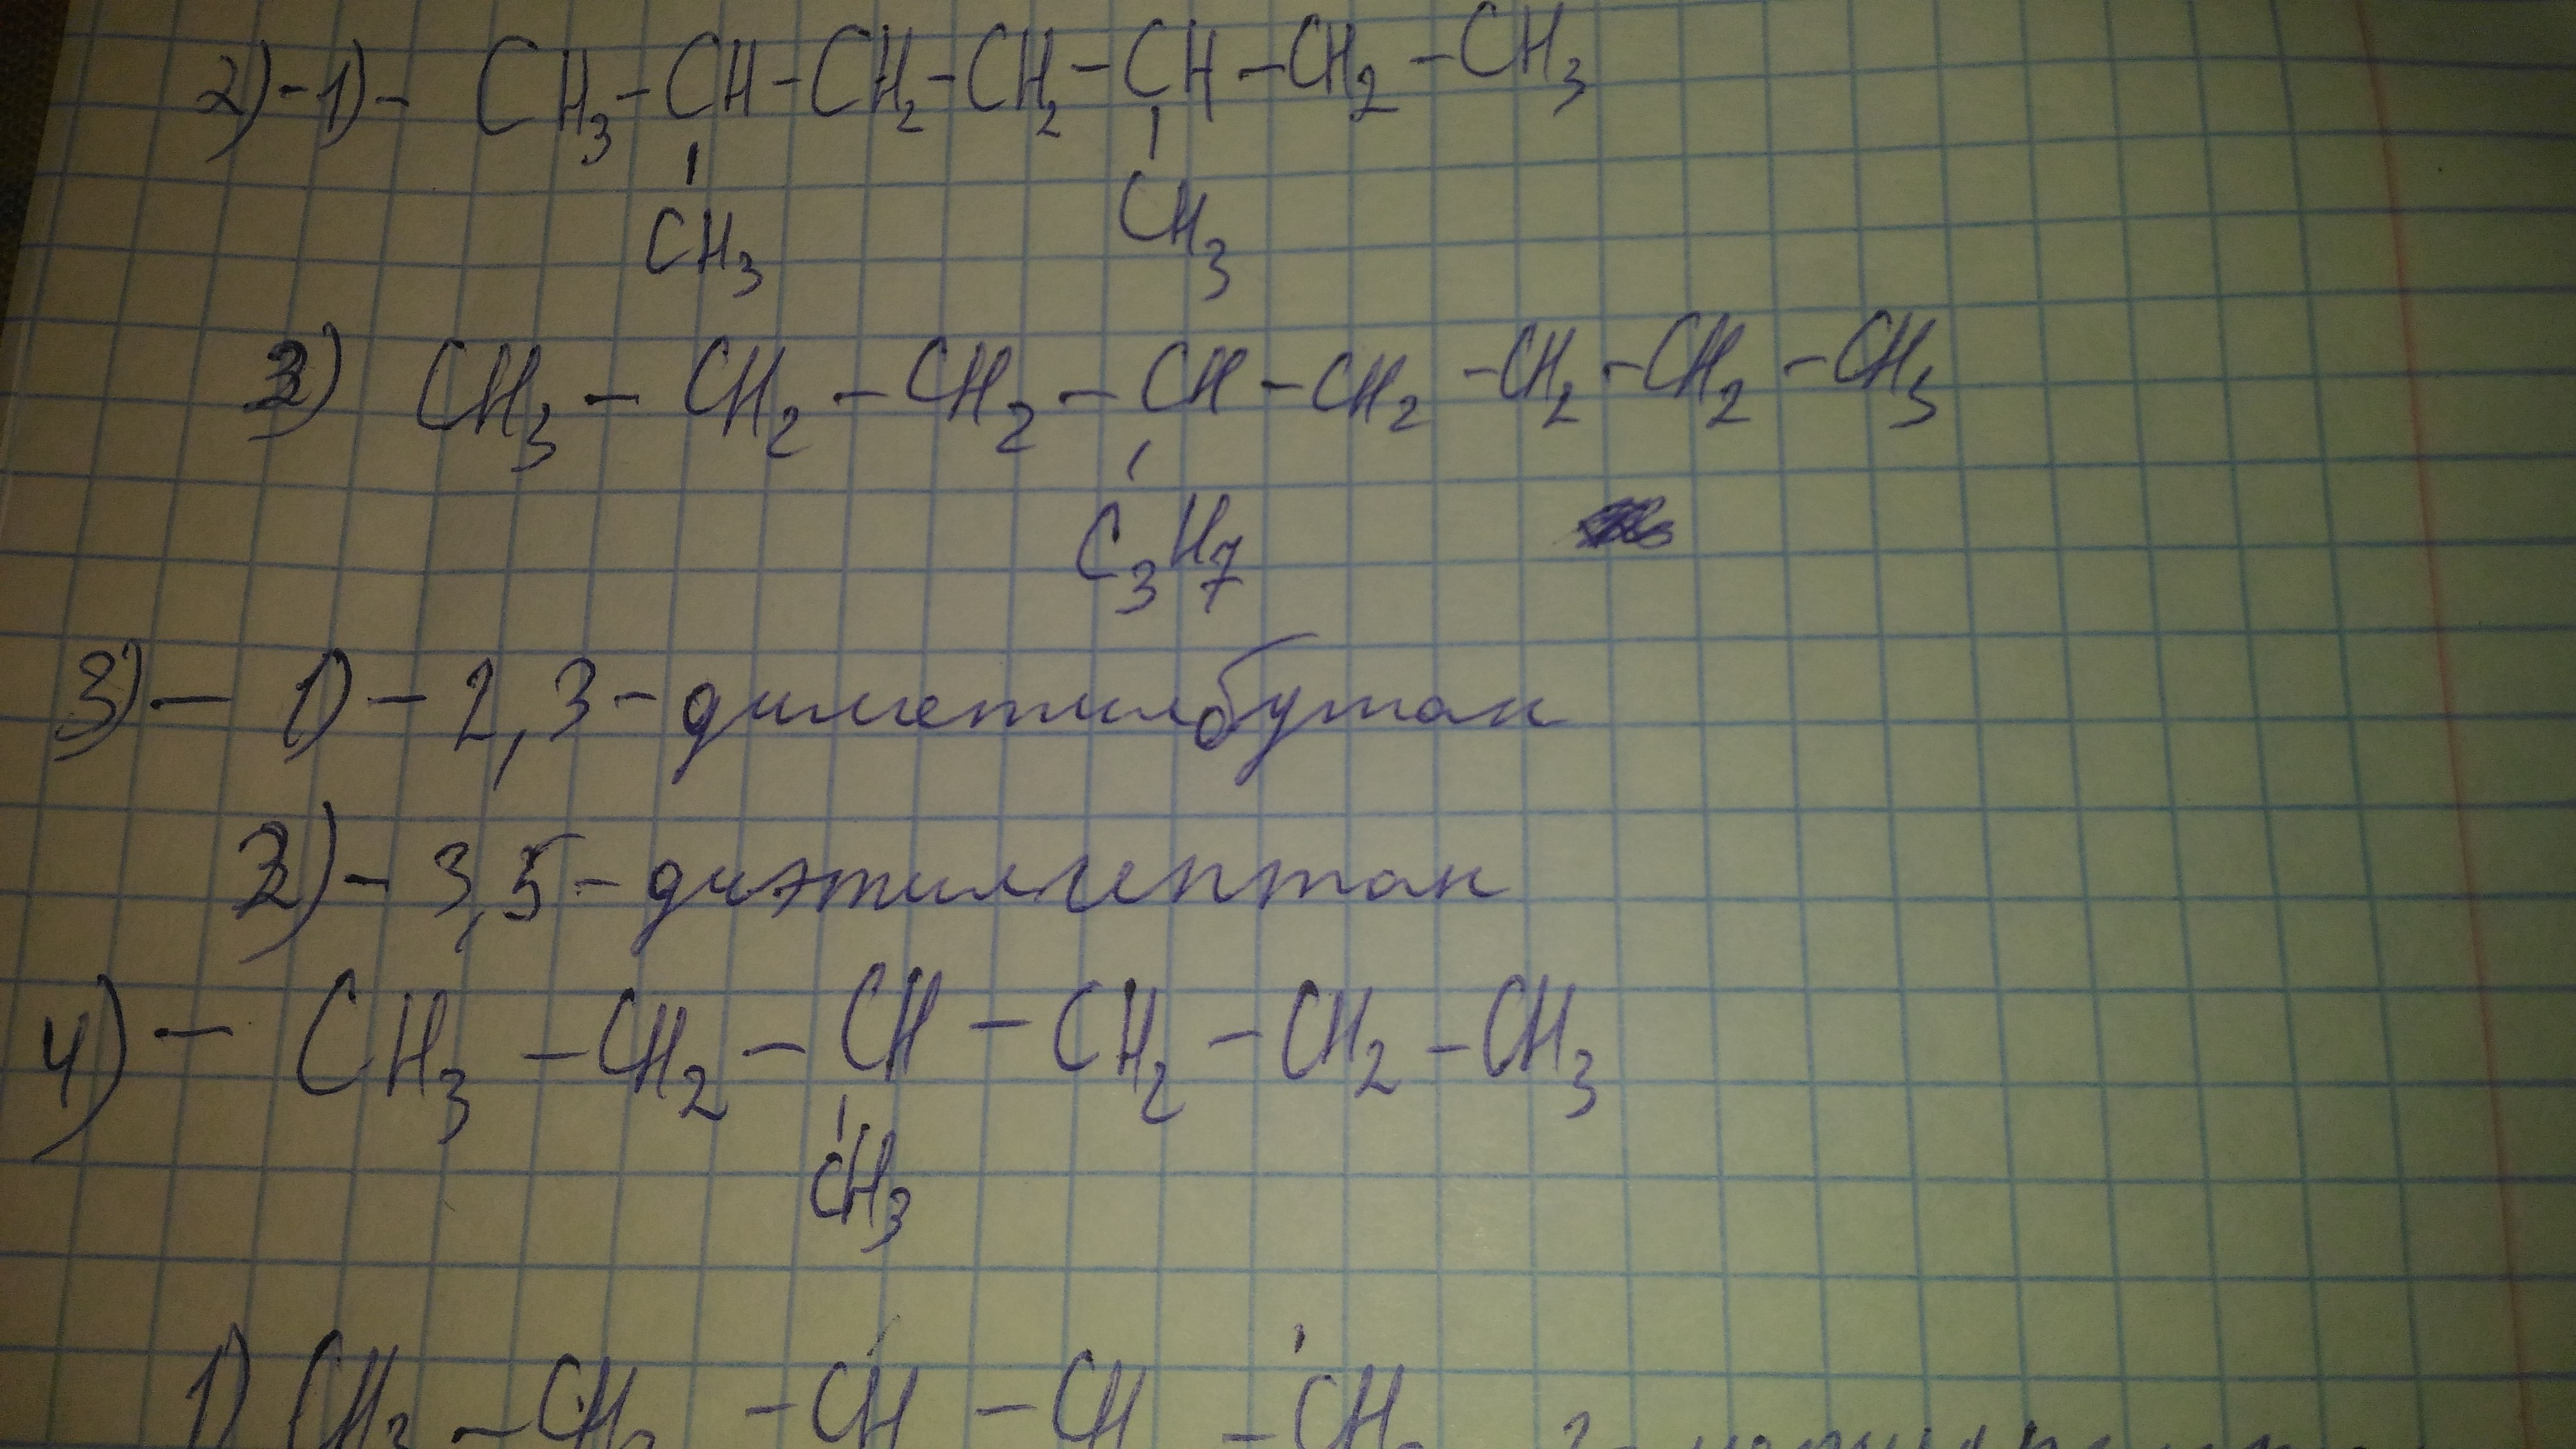 2)-1)- CH₃-CH-CH₂-CH₂-CH-CH₂-CH₃
CH₃ CH₃
2) CH₃-CH₂-CH₂-CH-CH₂-CH₂-CH₂-CH₃
C₃H₇
3)- 1)-2,3-диметилбутан
2)-3,5-диэтилгептан
4)- CH₃-CH₂-CH-CH₂-CH₂-CH₃
CH₃
1) CH₃-CH₂-CH-CH-CH